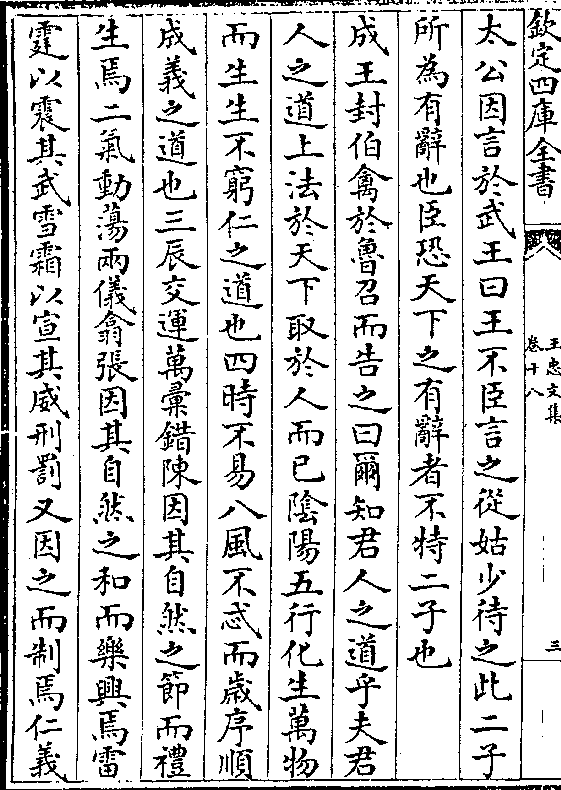 欽定四庫全書
王忠文集
卷十八
三
太公因言於武王曰王不臣言之從姑少待之此二子
所為有辭也臣恐天下之有辭者不特二子也
成王封伯禽於魯召而告之曰爾知君人之道乎夫君
人之道上法於天下取於人而已陰陽五行化生萬物
而生生不窮仁之道也四時不易八風不忒而歲序順
成義之道也三辰交運萬彙錯陳因其自然之節而禮
生焉二氣動蕩兩儀翕張因其自然之和而樂興焉雷
霆以震其武雪霜以宣其威刑罰又因之而制焉仁義